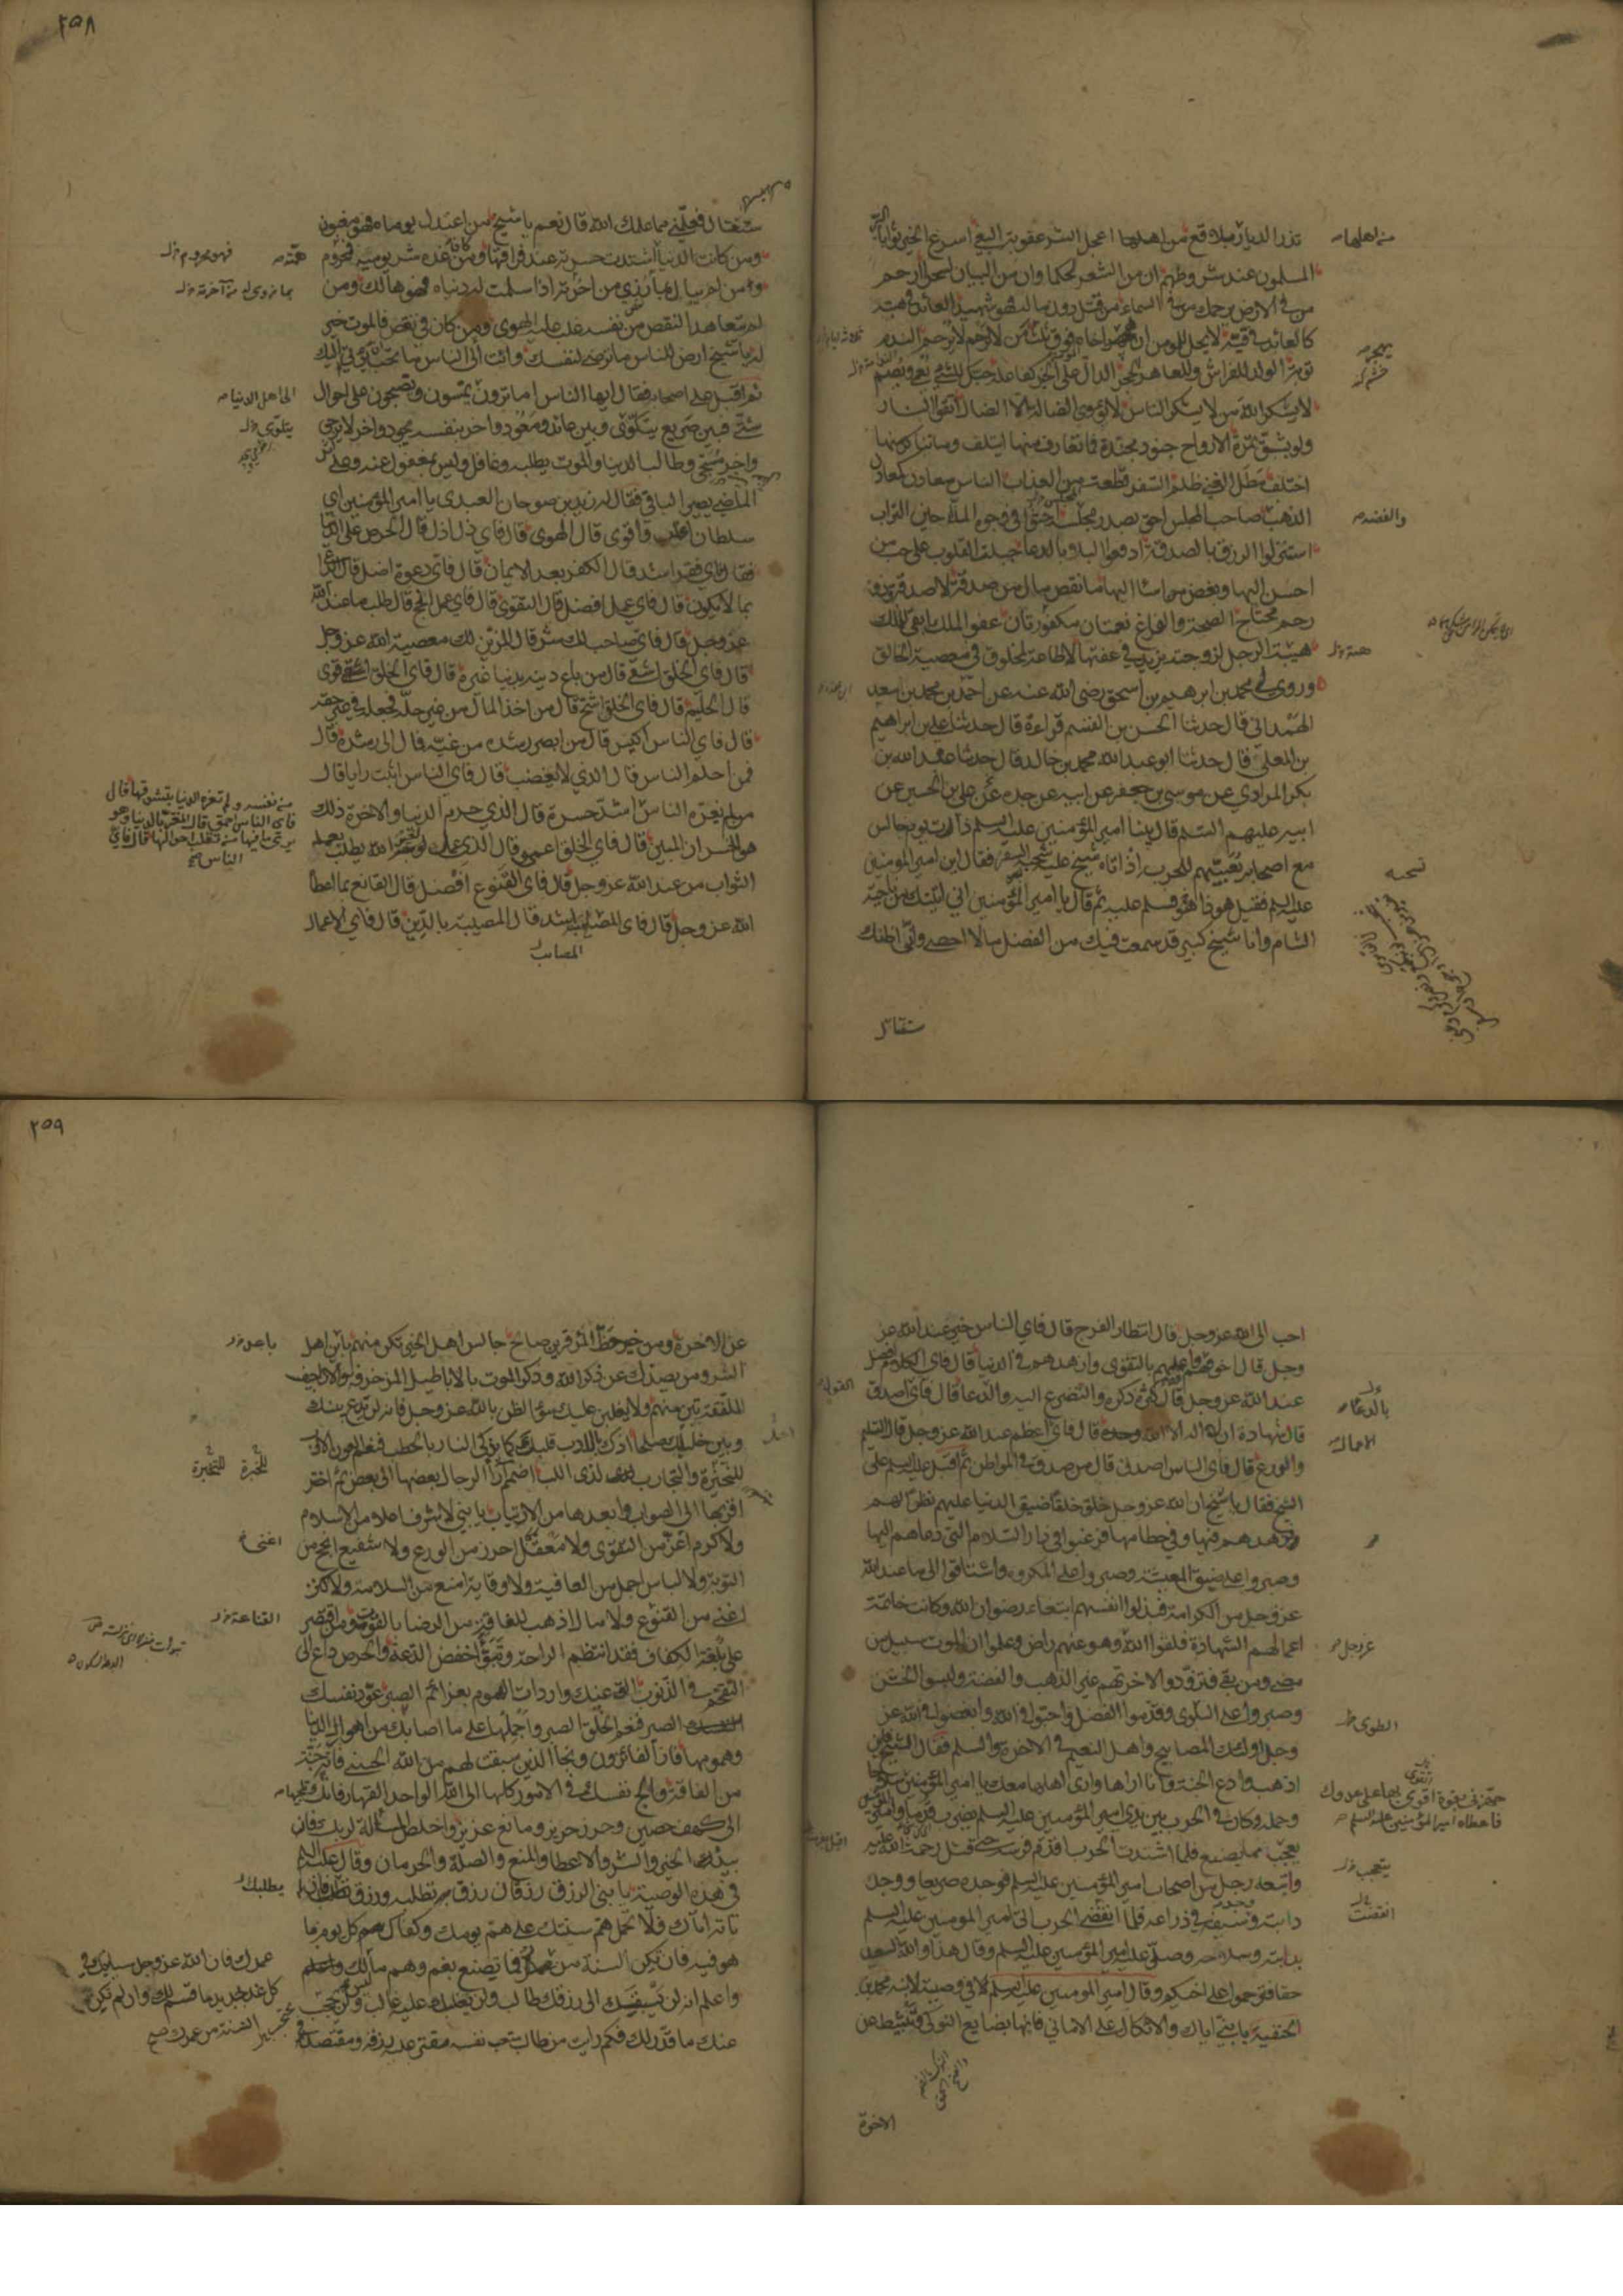 تذر الديار بلاقع من اهلها اعجل الشر عقوبة البغي اسرع الخير ثوابا البر
المسلمون عند شروطهم ان من الشعر لحكما وان من البيان لسحرا ارحم
من في الارض يرحمك من في السماء من قتل دون ماله فهو شهيد العائد في هبته
كالعائد في قيئه لا يحل للمؤمن ان يهجر اخاه فوق ثلث من لا يرحم لا يرحم الندم
توبة الولد للفراش وللعاهر الحجر الدال على الخير كفاعله حبك للشيء يعمي ويصم
لا يشكر الله من لا يشكر الناس لا يؤوي الضالة الا الضال اتقوا النار
ولو بشق تمرة الارواح جنود مجندة فما تعارف منها ايتلف وما تناكر منها
اختلف مطل الغني ظلم السفر قطعة من العذاب الناس معادن كمعادن
الذهب صاحب المجلس احق بصدر مجلسه احثوا في وجوه المداحين التراب
استنزلوا الرزق بالصدقة ادفعوا البلاء بالدعا جبلت القلوب على حب من
احسن اليها وبغض من اسا اليها ما نقص مال من صدقة لا صدقة وذو
رحم محتاج الصحة والفراغ نعمتان مكفورتان عفو الملك ابقى للملك
هيئة الرجل لزوجته يزيد في عفتها لا طاعة لمخلوق في معصية الخالق
وروي لي محمد بن ابرهيم بن اسحق رضي الله عنه عن احمد بن محمد بن سعيد
الهمداني قال حدثنا الحسن بن القسم قراءة قال حدثنا علي بن ابراهيم
بن المعلى قال حدثنا ابو عبد الله محمد بن خالد قال حدثنا عبد الله بن
بكر المرادي عن موسى بن جعفر عن ابيه عن جده عن علي بن الحسين عن
ابيه عليهم السلم قال بينا امير المؤمنين عليه السلم ذات يوم جالس
مع اصحابه يعبيهم للحرب اذ اتاه شيخ عليه شحبة السفر فقال اين امير المؤمنين
عليه السلم فقيل هو ذا هو فسلم عليه ثم قال يا امير المؤمنين اني اتيتك من ناحية
الشام وانا شيخ كبير قد سمعت فيك من الفضل ما لا احصي واني اظنك
ستغتال
من اهلها
يهجر
والفضة
نسخه
٢٥٨
ستغتال فعلمني مما علمك الله قال نعم يا شيخ من اعتدل يوماه فهو مغبون
ومن كانت الدنيا همته اشتدت حسرته عند فراقها ومن كان غده شر يوميه فمحروم
ومن لم يبال بما رزي من اخرته اذا سلمت له دنياه فهو هالك ومن
لم يتعاهد النقص من نفسه غلب عليه الهوى ومن كان في نقص فالموت خير
له يا شيخ ارض للناس ما ترضى لنفسك وائت الى الناس ما تحب ان يؤتى اليك
ثم اقبل على اصحابه فقال ايها الناس اما ترون يمسون ويصبحون على احوال
شتى فبين صريع يتلوى وبين عائد ومعود واخر بنفسه يجود واخر لا يرجى
واخر مسجى وطالب الدنيا والموت يطلبه وغافل وليس بمغفول عنه وعلى اثر
الماضي يصير الباقي فقال له زيد بن صوحان العبدي يا امير المؤمنين اي
سلطان اغلب واقوى قال الهوى قال فاي ذل اذل قال الحرص على الدنيا
فقال فاي فقر اشد قال الكفر بعد الايمان قال فاي دعوة اضل قال الداعي
بما لا يكون قال فاي عمل افضل قال التقوى قال فاي عمل انجح قال طلب ما عند الله
عز وجل قال فاي صاحب لك شر قال المزين لك معصية الله عز وجل
قال فاي الخلق اشقى قال من باع دينه بدنيا غيره قال فاي الخلق اقوى
قال الحليم قال فاي الخلق اشح قال من اخذ المال من غير حله فجعله في غير حقه
قال فاي الناس اكيس قال من ابصر رشده من غيه فمال الى رشده قال
فمن احلم الناس قال الذي لا يغضب قال فاي الناس اثبت رايا قال
من لم يغره الناس اشد حسرة قال الذي حرم الدنيا والاخرة ذلك
هو الخسران المبين قال فاي الخلق اعمى قال الذي عمل لغير الله يطلب بعمله
الثواب من عند الله عز وجل قال فاي القنوع افضل قال القانع بما اعطاه
الله عز وجل قال فاي المصائب اشد قال المصيبة بالدين قال فاي الاعمال
المصائب
همته
الى اهل الدنيا
من نفسه ولم تغره الدنيا بتشوفها قال
فاي الناس احمق قال المغتر بالدنيا وهو
يرى ما فيها من تقلب احوالها قال فاي
الناس صح
احب الى الله عز وجل قال انتظار الفرج قال فاي الناس خير عند الله عز
وجل قال اخوفهم لله واعملهم بالتقوى وازهدهم في الدنيا قال فاي الكلام افضل
عند الله عز وجل قال كثرة ذكره والتضرع اليه والدعا قال فاي القول اصدق
قال شهادة ان لا اله الا الله وحده قال فاي الاعمال اعظم عند الله عز وجل قال التسليم
والورع قال فاي الناس اصدق قال من صدق في المواطن ثم اقبل عليه السلم على
الشيخ فقال يا شيخ ان الله عز وجل خلق خلقا ضيق الدنيا عليهم نظرا لهم
وزهدهم فيها وفي حطامها فرغبوا في دار السلام التي دعاهم اليها
وصبروا على ضيق المعيشة وصبروا على المكروه واشتاقوا الى ما عند الله
عز وجل من الكرامة فبذلوا انفسهم ابتغاء رضوان الله وكانت خاتمة
اعمالهم الشهادة فلقوا الله وهو عنهم راض وعلموا ان الموت سبيل من
مضى ومن بقي فتزودوا لاخرتهم غير الذهب والفضة ولبسوا الخشن
وصبروا على البلوى وقدموا الفضل واحبوا في الله وابغضوا في الله عز
وجل اولئك المصابيح واهل النعيم في الاخرة والسلم فقال الشيخ فاين
اذهب وادع الجنة وانا اراها وارى اهلها معك يا امير المؤمنين
وحمله وكان في الحرب بين يدي امير المؤمنين عليه السلم يضرب قدما وامير المؤمنين
يعجب مما يصنع فلما اشتدت الحرب اقدم فرسه حتى قتل رحمة الله عليه
واتبعه رجل من اصحاب امير المؤمنين عليه السلم فوجده صريعا ووجد
دابته وسيفه في ذراعه فلما انقضى الحرب اتى امير المومنين عليه السلم
بدابته وسلاحه وصلى عليه امير المؤمنين عليه السلم وقال هذا والله السعيد
حقا فترحموا على اخيكم وقال امير المومنين عليه السلم في وصيته لابنه محمد بن
الحنفية يا بني اياك والاتكال على الاماني فانها بضايع النوكى وتثبيط عن
الاخرة
الاعمال
عز وجل
جهزني بقوة اتقوى بها على عدوك
فاعطاه امير المؤمنين عليه السلم
انقضت
٢٥٩
عن الاخرة ومن خير حظ المرء قرين صالح جالس اهل الخير تكن منهم باين اهل
الشر ومن يصدك عن ذكر الله وذكر الموت بالاباطيل المزخرفة والاراجيف
الملفقة تبن منهم ولا يغلبن عليك سوء الظن بالله عز وجل فانه لن يدع بينك
وبين خليلك صلحا اذك بالادب قلبك كما يذكى النار بالحطب فنعم العون الادب
للنحيزة والتجارب لذي اللب اضمم آراء الرجال بعضها الى بعض ثم اختر
اقربها الى الصواب وابعدها من الارتياب يا بني لا شرف اعلى من الاسلام
ولا كرم اعز من التقوى ولا معقل احرز من الورع ولا شفيع انجح من
التوبة ولا لباس اجمل من العافية ولا وقاية امنع من السلامة ولا كنز
اغنى من القنوع ولا مال اذهب للفاقة من الرضا بالقوت ومن اقتصر
على بلغة الكفاف فقد انتظم الراحة وتبوأ خفض الدعة والحرص داع الى
التقحم في الذنوب الق عنك واردات الهموم بعزائم الصبر عود نفسك
الصبر فنعم الخلق الصبر واحملها على ما اصابك من اهوال الدنيا
وهمومها فاز الفائزون ونجا الذين سبقت لهم من الله الحسنى فانه جنة
من الفاقة والجئ نفسك في الامور كلها الى الله الواحد القهار فانك تلجئها
الى كهف حصين وحرز حريز ومانع عزيز واخلص المسألة لربك فان
بيده الخير والشر والاعطا والمنع والصلة والحرمان وقال عليه السلم
في هذه الوصية يا بني الرزق رزقان رزق تطلبه ورزق يطلبك فان لم
تاته اتاك فلا تحمل هم سنتك على هم يومك وكفاك كل يوم ما
هو فيه فان تكن السنة من عمرك فما تصنع بغم وهم ما ليس لك واعلم
واعلم انه لن يسبقك الى رزقك طالب ولن يغلبك عليه غالب ولن يحتجب
عنك ما قدر لك فكم رايت من طالب متعب نفسه مقتر عليه رزقه ومقتصد في
القناعة
يطلبك
عمرك فان الله عز وجل سياتيك في
كل غد جديد ما قسم لك وان لم تكن
السنة من عمرك صح